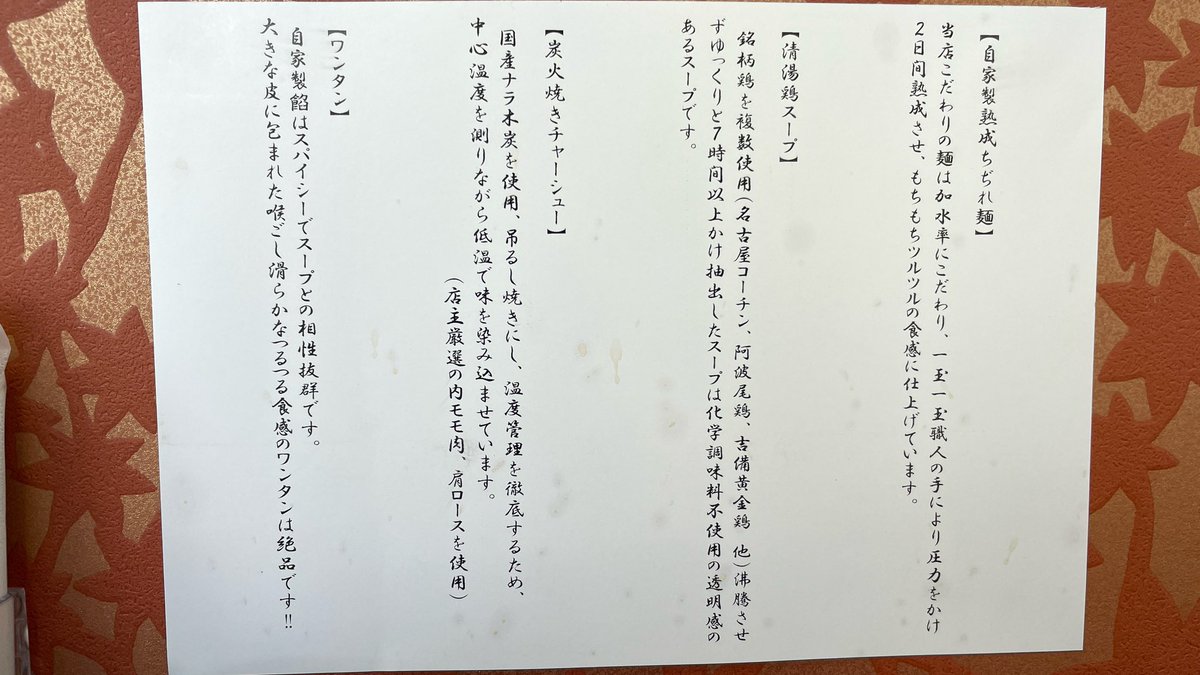 【自家製熟成ちぢれ麺】
当店こだわりの麺は加水率にこだわり、一玉一玉職人の手により圧力をかけ
2日間熟成させ、もちもちツルツルの食感に仕上げています。
【清湯鶏スープ】
銘柄鶏を複数使用(名古屋コーチン、阿波尾鶏、吉備黄金鶏 他)沸騰させ
ずゆっくりと7時間以上かけ抽出したスープは化学調味料不使用の透明感の
あるスープです。
【炭火焼きチャーシュー】
国産ナラ木炭を使用、吊るし焼きにし、温度管理を徹底するため、
中心温度を測りながら低温で味を染み込ませています。
(店主厳選の内モモ肉、肩ロースを使用)
【ワンタン】
自家製餡はスパイシーでスープとの相性抜群です。
大きな皮に包まれた喉ごし滑らかなつるつる食感のワンタンは絶品です!!